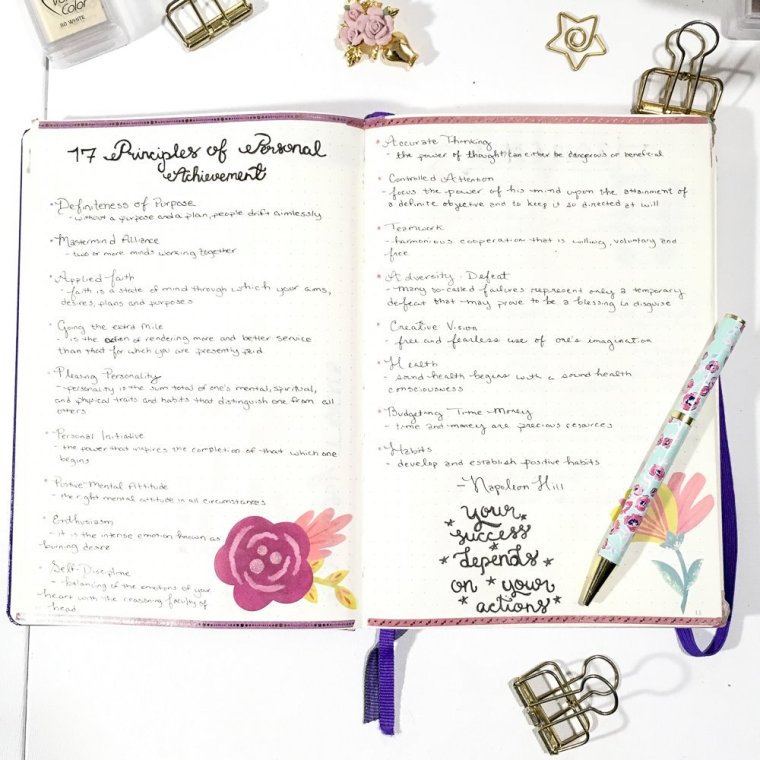 Color
80 WHITE
17 Principles of Personal
Achievement
Definiteness of Purpose
- without a purpose and a plan, people drift aimlessly
Mastermind Alliance
- two or more minds working together
Applied faith
- faith is a state of mind through which your aims,
desires, plans and purposes
Going the extra mile
- is the action of rendering more and better service
than that for which you are presently paid
Pleasing Personality
- personality is the sum total of one's mental, spiritual,
and physical traits and habits that distinguish one from all
others
Personal Initiative
- the power that inspires the completion of that which one
begins
Positive Mental Attitude
- the right mental attitude in all circumstances
Enthusiasm
- it is the intense emotion known as
burning desire
Self-Discipline
- balancing of the emotions of your
heart with the reasoning faculty of
head
Accurate Thinking
- the power of thought can either be dangerous or beneficial
Controlled Attention
- focus the power of his mind upon the attainment of
a definite objective and to keep it so directed at will
Teamwork
- harmonious cooperation that is willing, voluntary and
free
Adversity · Defeat
- many so-called failures represent only a temporary
defeat that may prove to be a blessing in disguise
Creative Vision
- free and fearless use of one's imagination
Health
- sound health begins with a sound health
consciousness
Budgeting Time · Money
- time and money are precious resources
Habits
- develop and establish positive habits
- Napoleon Hill
your
success
depends
on your
actions